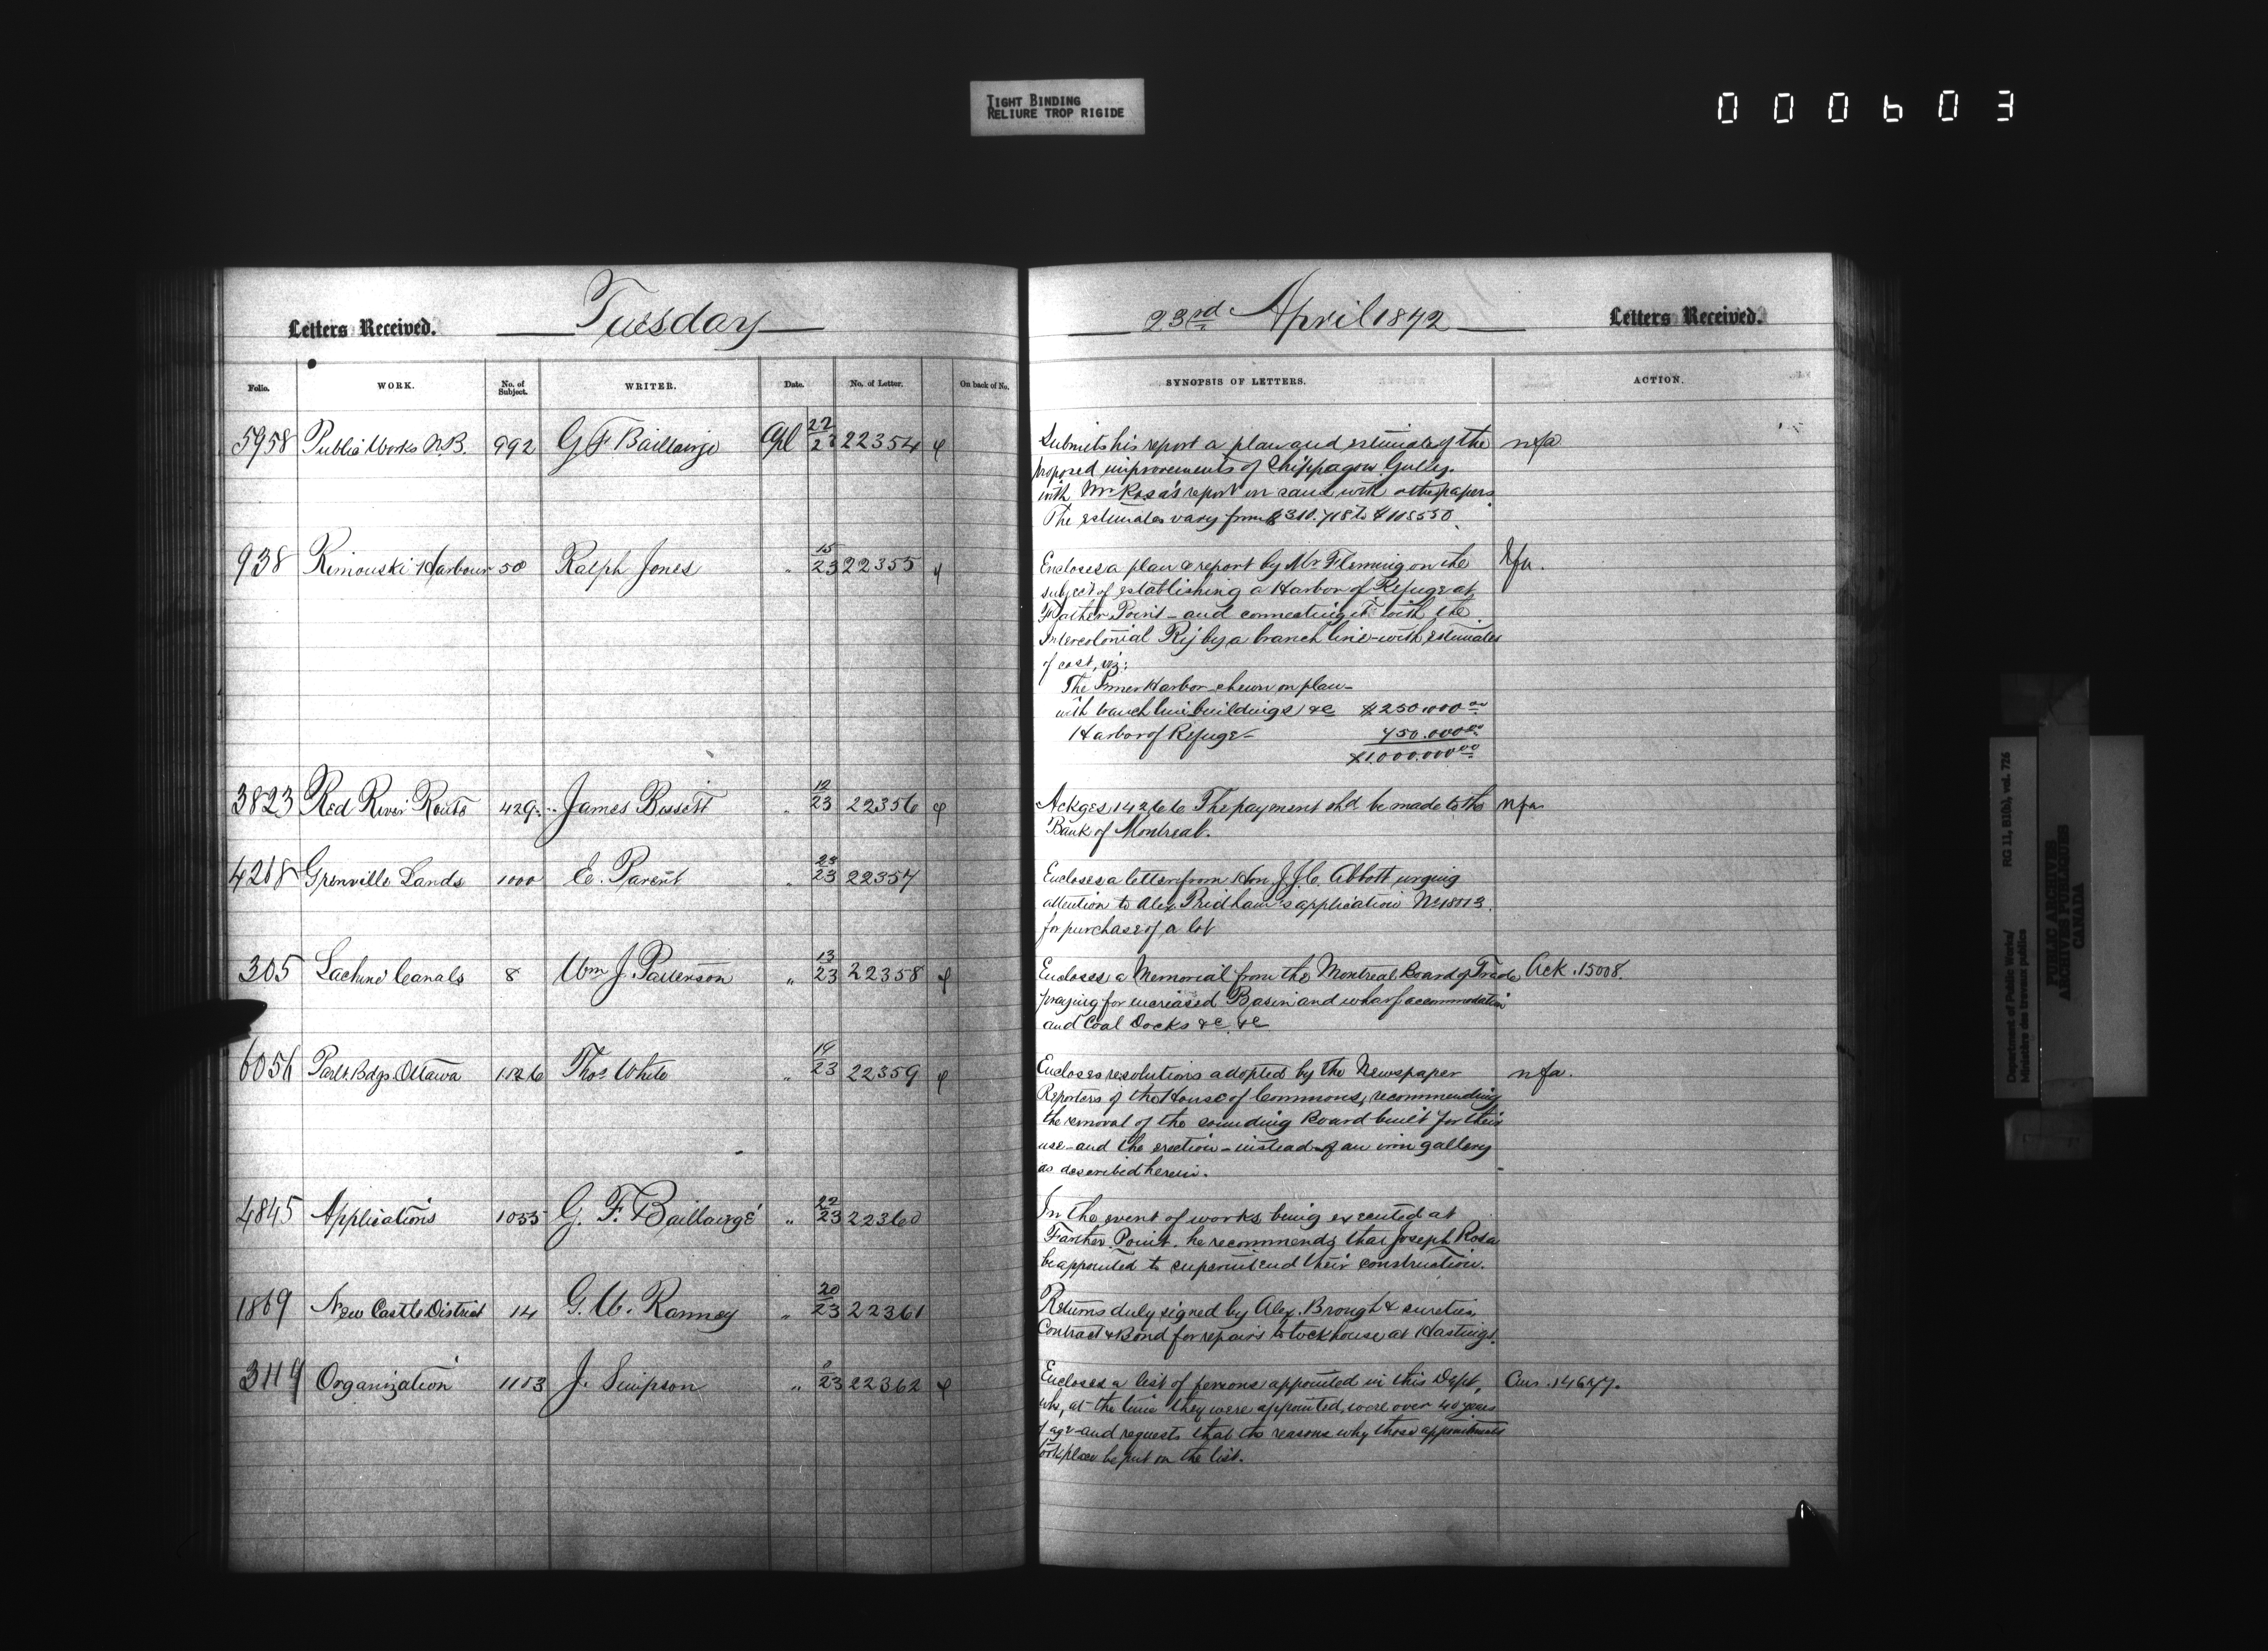 TIGHT BINDING
RELIURE TROP RIGIDE
000603
Letters Received. Tuesday
Folio. WORK. No. of Subject. WRITER. Date. No. of Letter. On back of No.
5958 Public Works N.B. 992 G F Baillairgé Apl 22/23 22354
938 Rimouski Harbour 50 Ralph Jones " 15/23 22355
3823 Red River Route 429 James Bissett " 12/23 22356
4268 Grenville Lands 1000 E. Parent " 23/23 22357
305 Lachine Canals 8 Wm J. Patterson " 13/23 22358
6056 Parlt. Bdgs. Ottawa 1126 Thos White " 19/23 22359
4845 Applications 1055 G. F. Baillairgé " 22/23 22360
1869 New Castle District 14 G. W. Ranney " 20/23 22361
3119 Organization 1153 J. Simpson " 23 22362
23rd April 1872 Letters Received.
SYNOPSIS OF LETTERS. ACTION.
Submits his report a plan and estimate of the nfa
proposed improvements of Shippagow Gully.
with Mr Rosa's report on same with other papers.
The estimates vary from to
Encloses a plan & report by Mr. Fleming on the nfa.
subject of establishing a Harbor of Refuge at
Father Point - and connecting it with the
Intercolonial Ry by a branch line - with estimates
of cost, viz:
The Inner Harbor shewn on plan -
with branch line buildings &c $250.000.00
Harbor of Refuge - 750.000.00
$1.000.000.00
Ackges. 14266 The payment shd. be made to the nfa.
Bank of Montreal.
Encloses a letter from Hon. J.J.C. Abbott urging
attention to Alex Pridham's application No. 18013.
for purchase of a lot
Encloses a Memorial from the Montreal Board of Trade Ack. 15008.
praying for increased Basin and wharf accommodation
and Coal Docks &c &c
Encloses resolutions adopted by the Newspaper nfa.
Reporters of the House of Commons, recommending
the removal of the sounding Board built for their
use - and the erection - instead of an iron gallery
as described herein.
In the event of works being executed at
Farther Point. he recommends that Joseph Rosa
be appointed to superintend their construction.
Returns duly signed by Alex. Brough & sureties,
Contract & Bond for repairs to lockhouse at Hastings.
Encloses a list of persons appointed in this Dept,
who, at the time they were appointed, were over 40 years
of age and requests that the reasons why those appointments
took place be put on the list.
Department of Public Works/ RG 11, B1(b), vol. 726
Ministère des travaux publics
PUBLIC ARCHIVES
ARCHIVES PUBLIQUES
CANADA